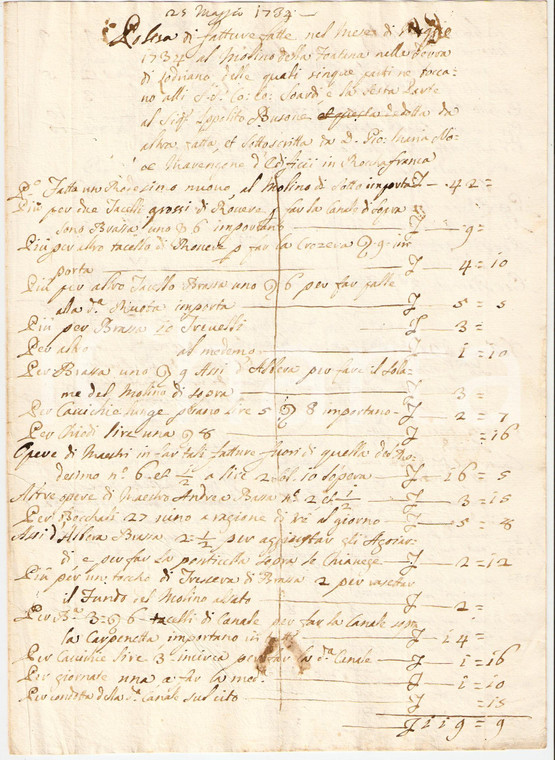 25 Maggio 1734 —
Polisa di fatture fatte nel Mese di Maggio
1734 al Molino della Fontana nella Terra
di Lodriano delle quali cinque parti ne tocca-
no alli SS.ri Co: Co: Soardi e la Sesta Parte
al Sig.r Ippolito Busone et questa dedotta da
altra fatta, et Sottoscritta da D. Gio: Maria
MaVencone d'Edificii in Roccafranca
P.o Fatto un Rodesino nuovo al Molino di Sotto importa £ 42 =
Più per due Tacelli grossi di Rovere p far la Canale di sopra
sono Brassa uno @ 6 importano £ 9 =
Più per altro tacello di Rovere p far la Crozera @ 9 im
porta £ 4 = 10
Più per altro Tacello Brassa uno @ 6 per far falle
alla d.a Ruota importa £ 5 = 5
Più per Brassa Trevelli £ 3 =
Per altro al medemo £ 1 = 10
Per Brassa uno @ 9 Assi d'Albera per fare il Sola-
me del Molino di sopra £ 3 =
Per Cavichie lunge piano lire 5 @ 8 importano £ 2 = 7
Per Chiodi lire una @ 8 £ = 16
Opere di Maestri in far tali fatture fuori di quella del Ro-
desimo n.o 6 et 1/2 a lire 2 al 10 l'opera £ 16 = 5
Altre opere di Maestro Andreo Brassa n.o 2 et 1/2 £ 3 = 15
Per 27 sieno a ragione di al giorno £ 5 = 8
Assi d'Albera Brassa 2 = 1/2 per aggiustar gli
di e per far la ponticella sopra le £ 2 = 12
Più per un torcho di Brassa 2 per
il Fundo del Molino £ 2 =
Per B.a 3 = @ 6 tacelli di Canale per far la Canale sotto
la importano in tutto £ 14 =
Per Cavichie lire 3 incirca per far la d.a Canale £ 1 = 16
Per giornate una a far la med. £ 1 = 10
Per condotta della d.a Canale sul sito £ = 15
£ 119 = 9